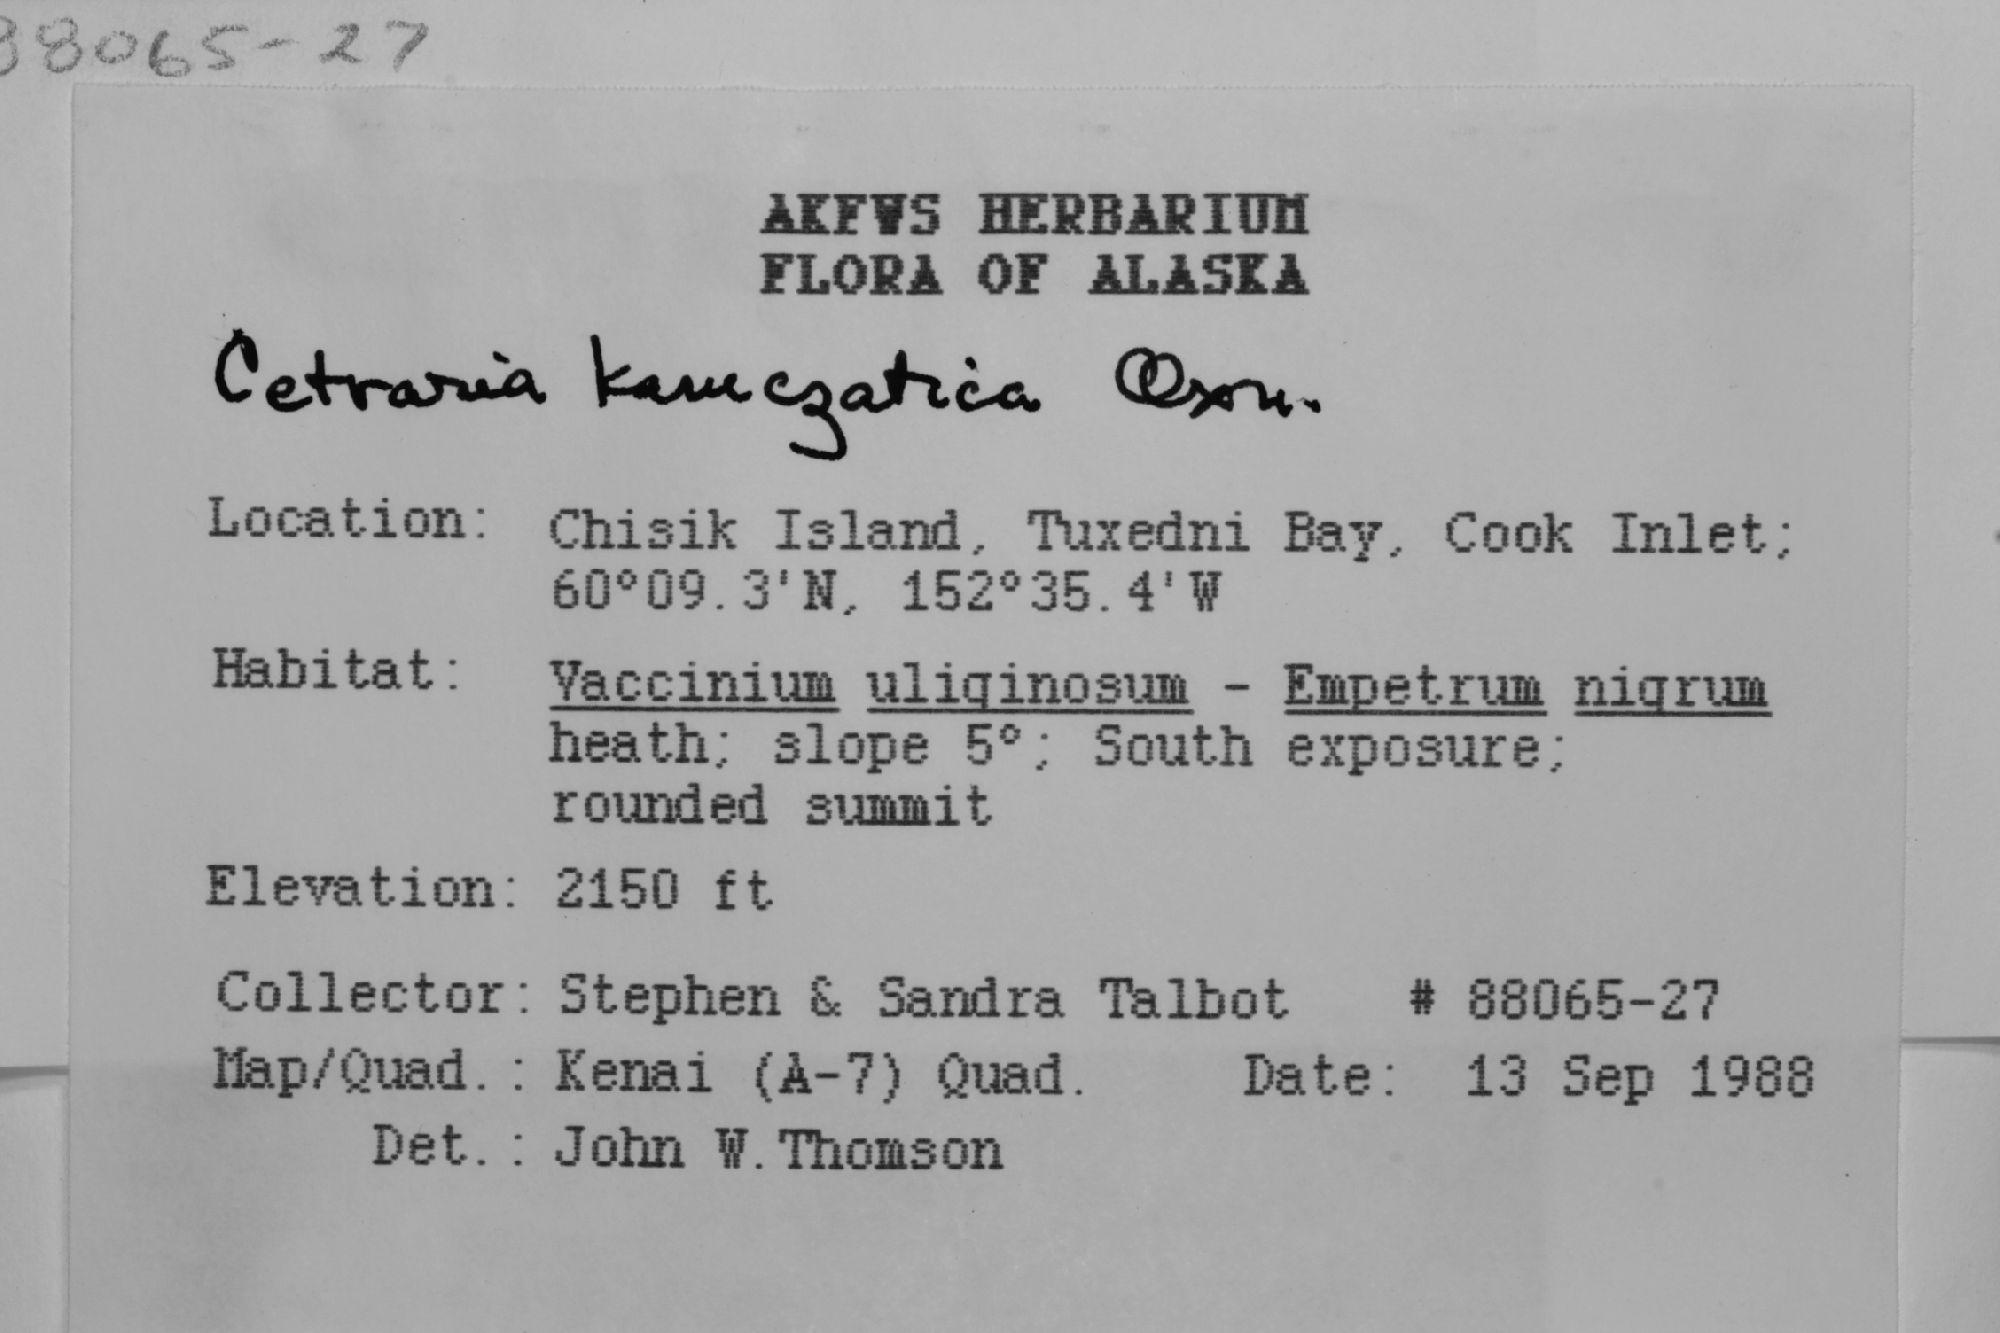 88065-27
AKFWS HERBARIUM
FLORA OF ALASKA
Cetraria kamczatica
Location: Chisik Island, Tuxedni Bay, Cook Inlet;
60°09.3'N, 152°35.4'W
Habitat: Vaccinium uliginosum - Empetrum nigrum
heath; slope 5°; South exposure;
rounded summit
Elevation: 2150 ft
Collector: Stephen & Sandra Talbot # 88065-27
Map/Quad.: Kenai (A-7) Quad. Date: 13 Sep 1988
Det.: John W. Thomson